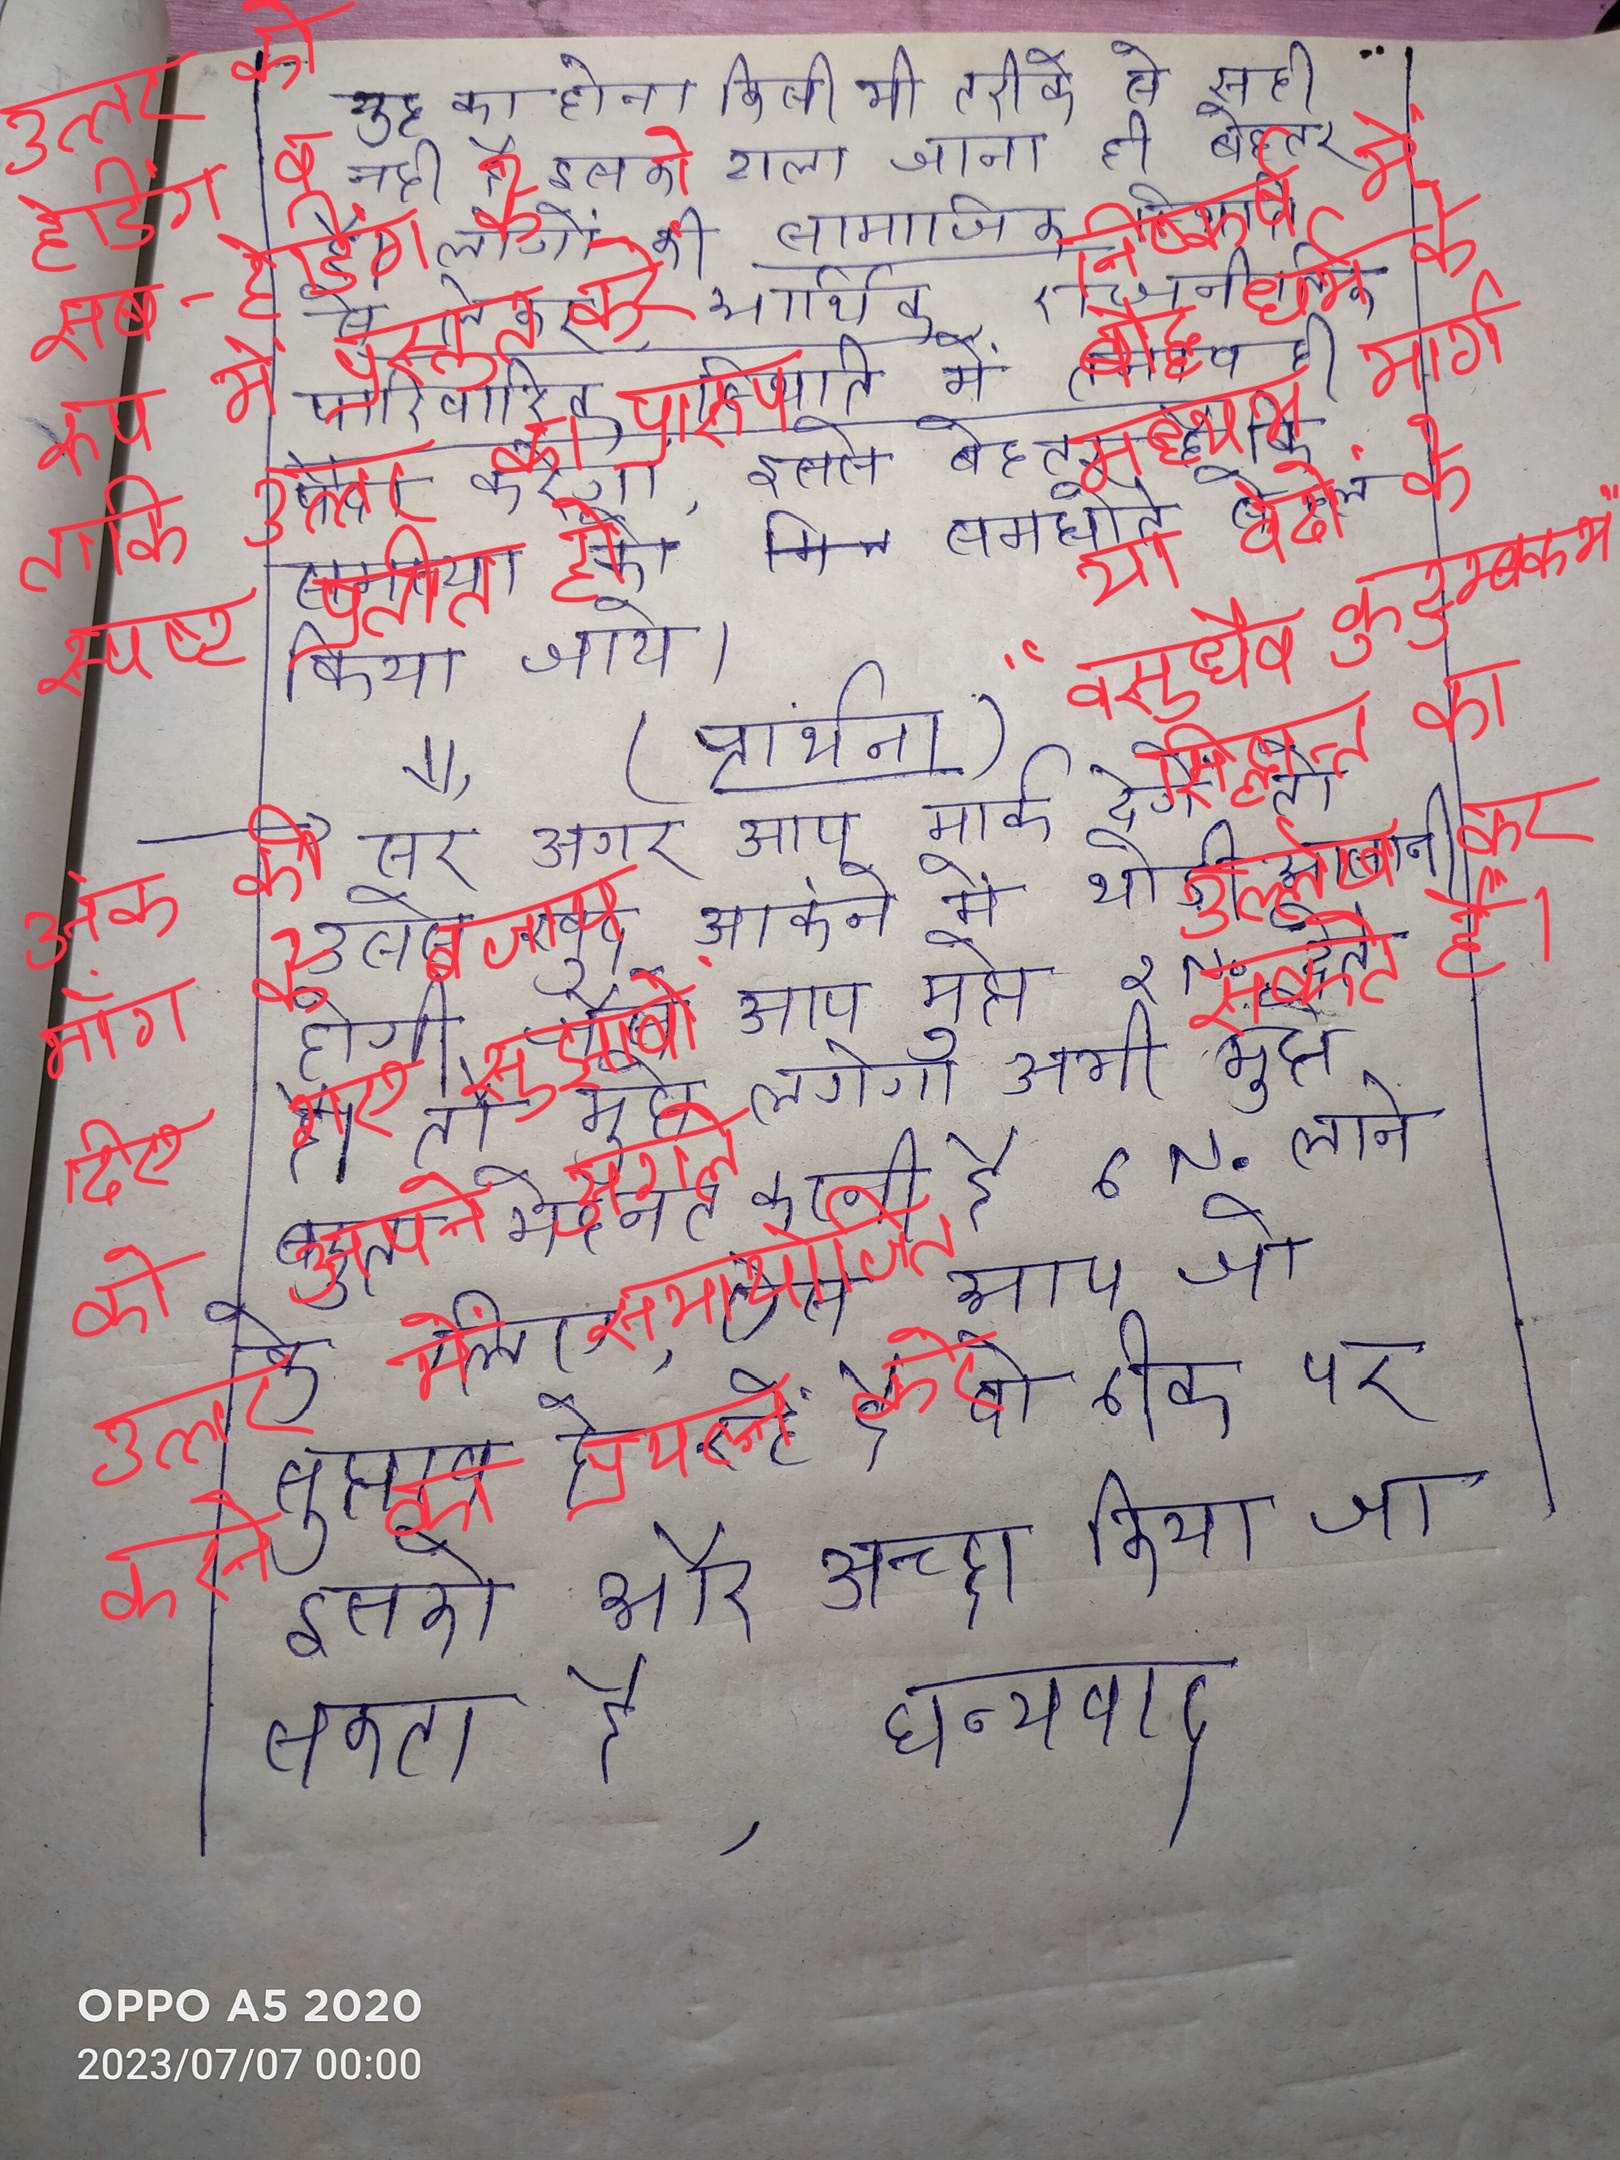 युद्द का होना किसी भी तरीके से सही
नही है इसको टाला जाना ही बेहतर
है। लोगों की सामाजिक
से लेकर आर्थिक राजनीतिक
पारिवारिक स्थिति में तनाव ही
पैदा करेगा, इससे बेहतर है कि
समस्या को समझौते से हल
किया जाये।
(प्रार्थना)
सर अगर आप मार्क देगें तो
उससे खुद आकंने में थोड़ी आसानी
होगी, आप मुझे 2 N. देते
है तो मुझे लगेगा अभी मुझे
बहुत मेहनत करनी है 6 N. लाने
के लिए, आप जो
सुझाव देते हैं वो ठीक पर
इसको और अच्छा किया जा
सकता है, धन्यवाद
उत्तर को
हेडिंग व
सब-हेडिंग के
रूप में प्रस्तुत करें
ताकि उत्तर का प्रारूप
स्पष्ट प्रतीत हो
निष्कर्ष में
बौद्ध धर्म के
मध्यम मार्ग
या वेदों के
"वसुधैव कुटुम्बकम"
सिद्धान्त का
उल्लेख कर
सकते हैं।
अंक की
मांग के बजाय
दिए गए सुझावों
को अपने अगले
उत्तर में समायोजित
करने का प्रयत्न करें
OPPO A5 2020
2023/07/07 00:00